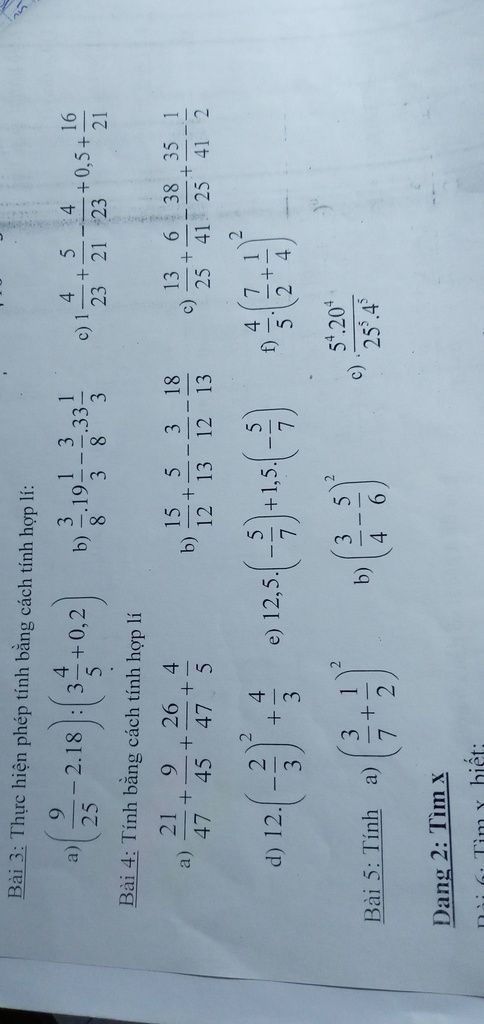 Bài 3: Thực hiện phép tính bằng cách tính hợp lí:
a) (9/25 − 2.18) : (3 4/5 + 0,2) b) 3/8 . 19 1/3 − 3/8 . 33 1/3 c) 1 4/23 + 5/21 − 4/23 + 0,5 + 16/21
Bài 4: Tính bằng cách tính hợp lí
a) 21/47 + 9/45 + 26/47 + 4/5 b) 15/12 + 5/13 − 3/12 − 18/13 c) 13/25 + 6/41 − 38/25 + 35/41 − 1/2
d) 12.(−2/3)² + 4/3 e) 12,5.(−5/7) + 1,5.(−5/7) f) 4/5.(7/2 + 1/4)²
Bài 5: Tính a) (3/7 + 1/2)² b) (3/4 − 5/6)² c) 5⁴.20⁴/25⁵.4⁵
Dạng 2: Tìm x
Bài 6: Tìm x, biết: